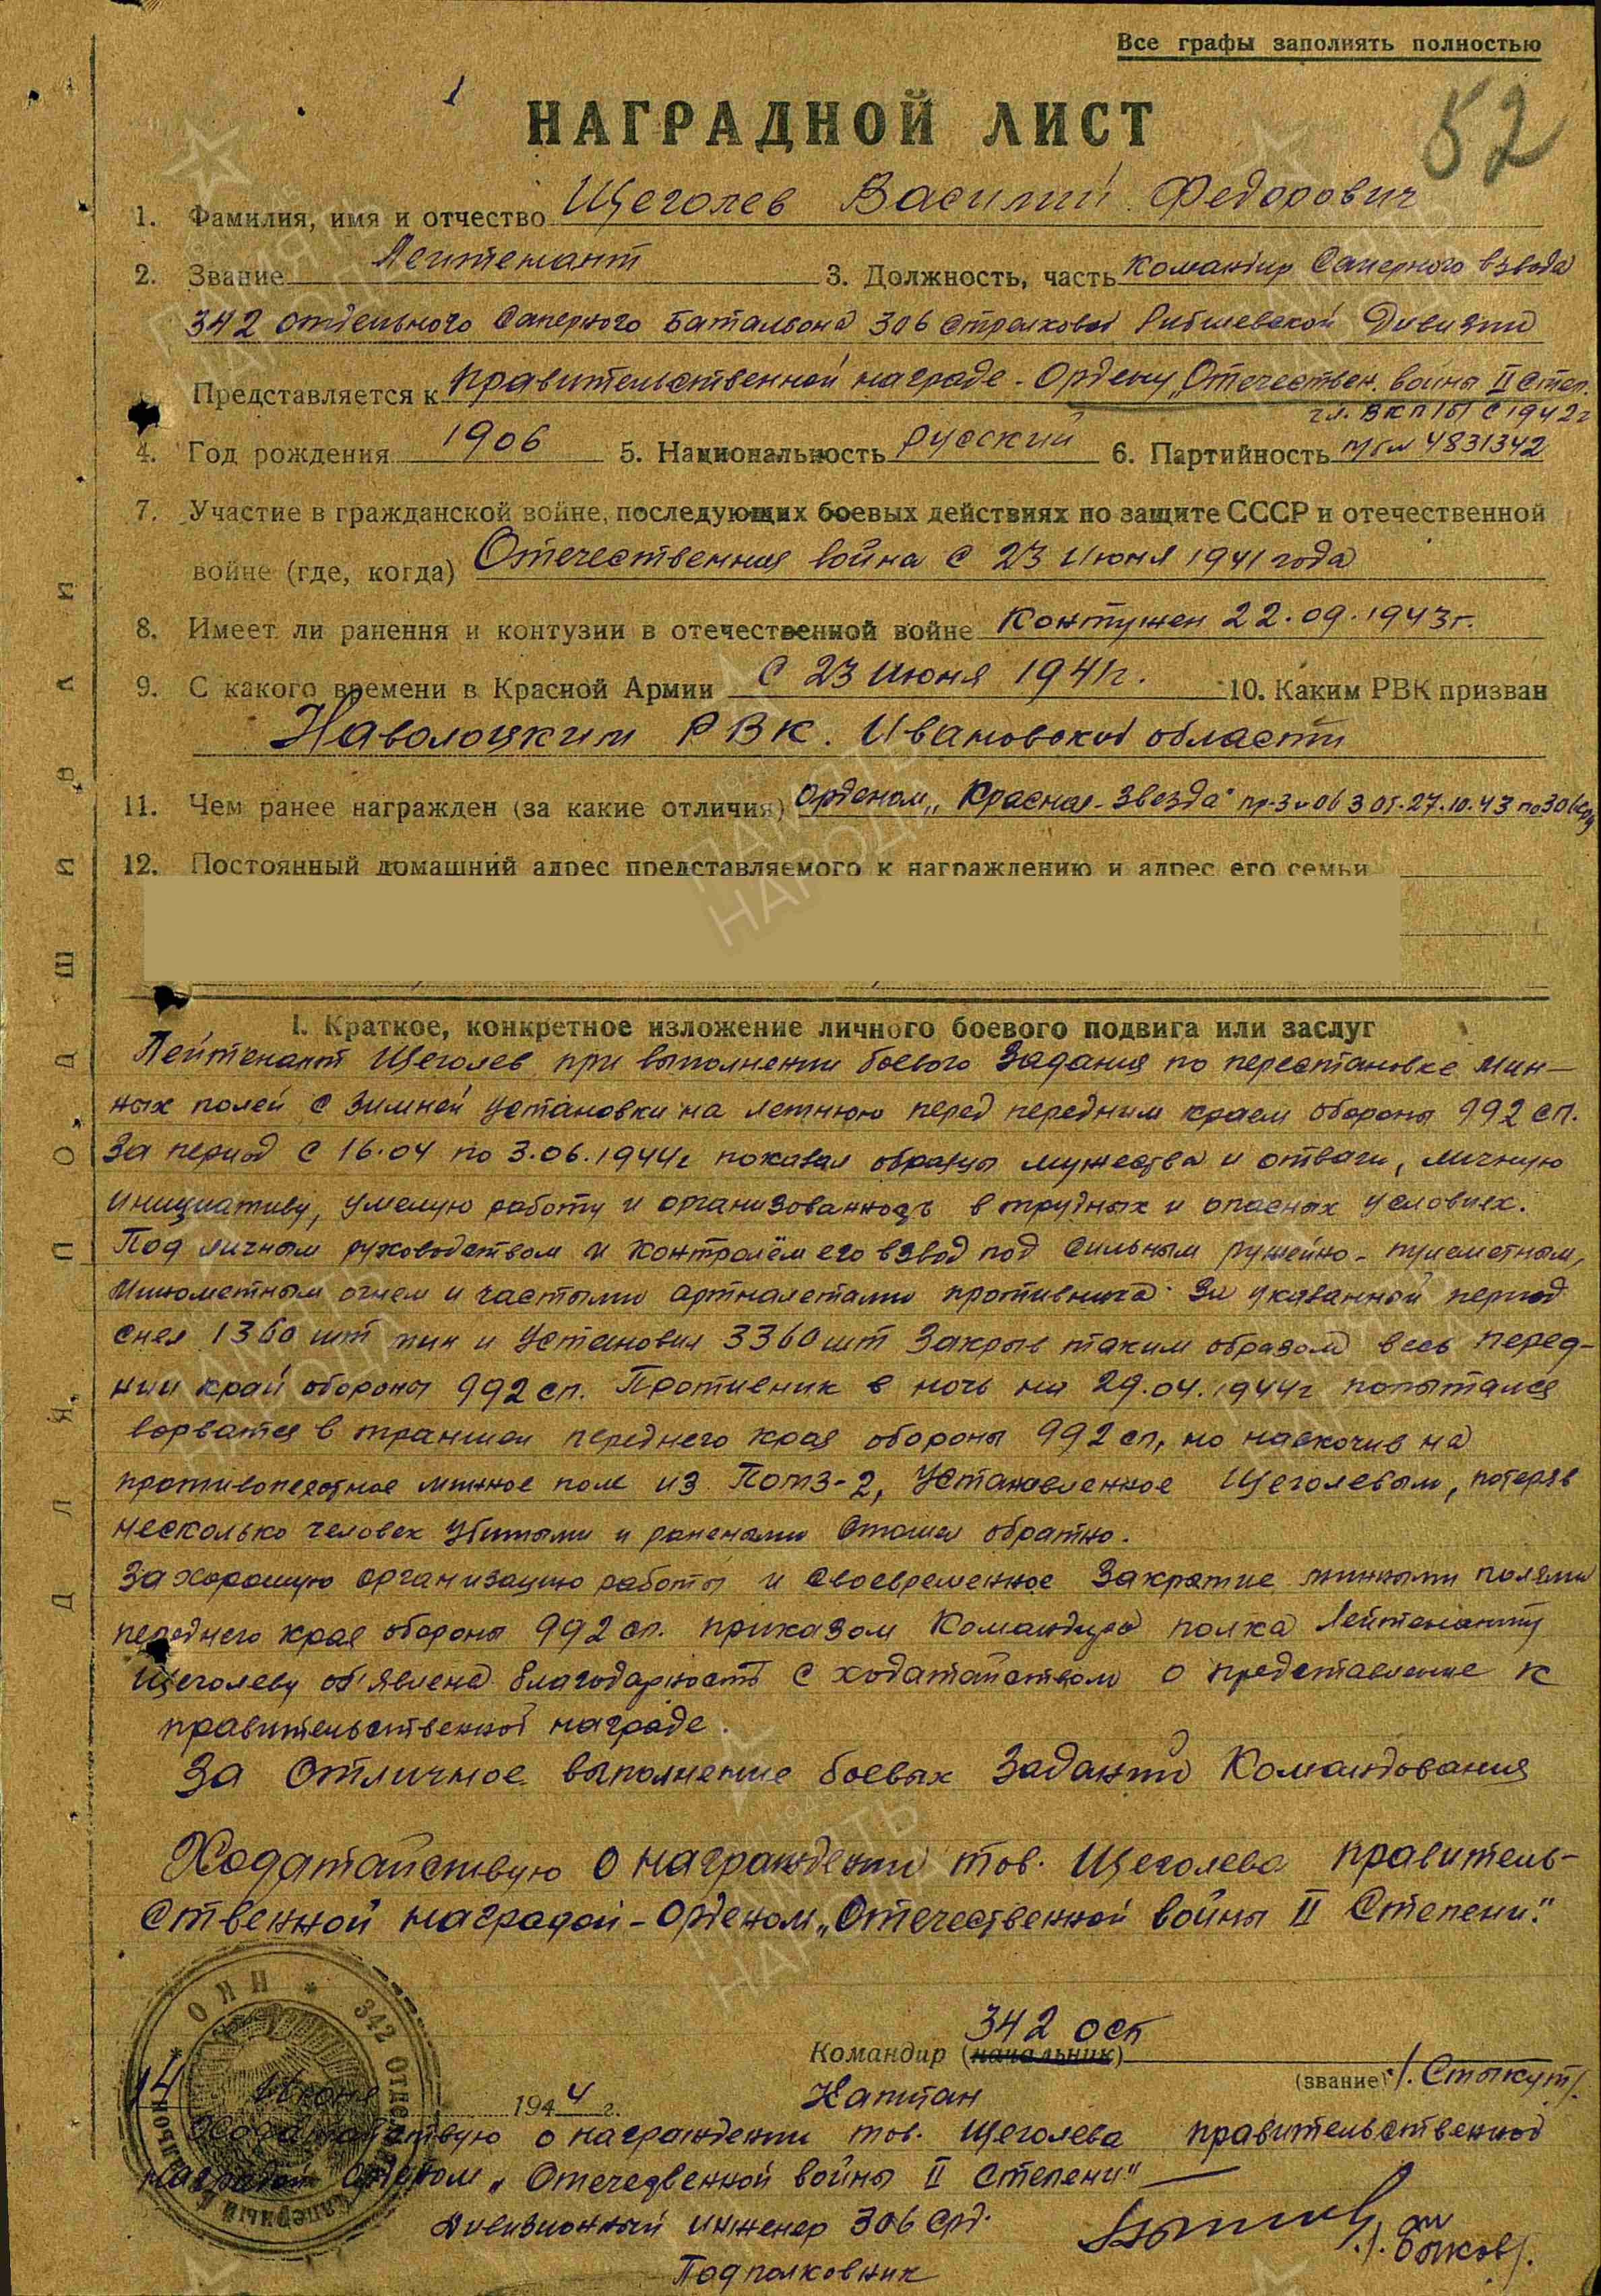 Все графы заполнять полностью
1
52
НАГРАДНОЙ ЛИСТ
1. Фамилия, имя и отчество Щеголев Василий Федорович
2. Звание Лейтенант 3. Должность, часть командир Саперного взвода
342 отдельного Саперного Батальона 306 стрелковой Рибшевской Дивизии
Представляется к правительственной награде - Ордену „Отечествен. войны II степ.
чл. ВКП(б) с 1942г
4. Год рождения 1906 5. Национальность русский 6. Партийность п/бил 4831342
7. Участие в гражданской войне, последующих боевых действиях по защите СССР и отечественной
войне (где, когда) Отечественная война с 23 июня 1941 года
8. Имеет ли ранения и контузии в отечественной войне Контужен 22.09.1943г.
9. С какого времени в Красной Армии с 23 июня 1941г. 10. Каким РВК призван
Наволоцким РВК. Ивановской области
11. Чем ранее награжден (за какие отличия) орденом „Красная-Звезда" пр-з №063 от 27.10.43 по 306 сд
12. Постоянный домашний адрес представляемого к награждению и адрес его семьи
I. Краткое, конкретное изложение личного боевого подвига или заслуг
Лейтенант Щеголев при выполнении боевого Задания по перестановке мин-
ных полей с Зимней установки на летнюю перед передним краем обороны 992 сп.
За период с 16.04 по 3.06.1944г показал образцы мужества и отваги, личную
инициативу, умелую работу и организованность в трудных и опасных условиях.
Под личным руководством и контролём его взвод под сильным ружейно-пулеметным,
минометным огнем и частыми артналетами противника За указанной период
снял 1360 шт мин и Установил 3360 шт Закрыв таким образом весь перед-
нии край обороны 992 сп. Противник в ночь на 29.04.1944г попытался
ворватся в траншеи переднего края обороны 992 сп, но наскочив на
противопехотное минное поле из Помз-2, Установленное Щеголевым, потеряв
несколько человек убитыми и ранеными отошел обратно.
За хорошую организацию работы и своевременное Закрытие минными полями
переднего края обороны 992 сп. приказом Командира полка Лейтенанту
Щеголеву об'явлена благодарность с ходатайством о представление к
правительственной награде.
За отличное выполнение боевых Заданий Командования
Ходатайствую о награждении тов. Щеголева правитель-
ственной наградой - Орденом „Отечественной войны II Степени."
342 осб
Командир (начальник)
(звание) /. Стыкут/.
Капитан
14 Июня 1944 г.
Ходатайствую о награждении тов. Щеголева правительственной
наградой орденом „Отечедвенной войны II степени"
Дивизионный инженер 306 срд.
Подполковник /. Быков/.
ДЛЯ ПОДШИВКИ
ОНН * 342 ОТДЕЛЬНЫЙ САПЕРНЫЙ
ПАМЯТЬ НАРОДА